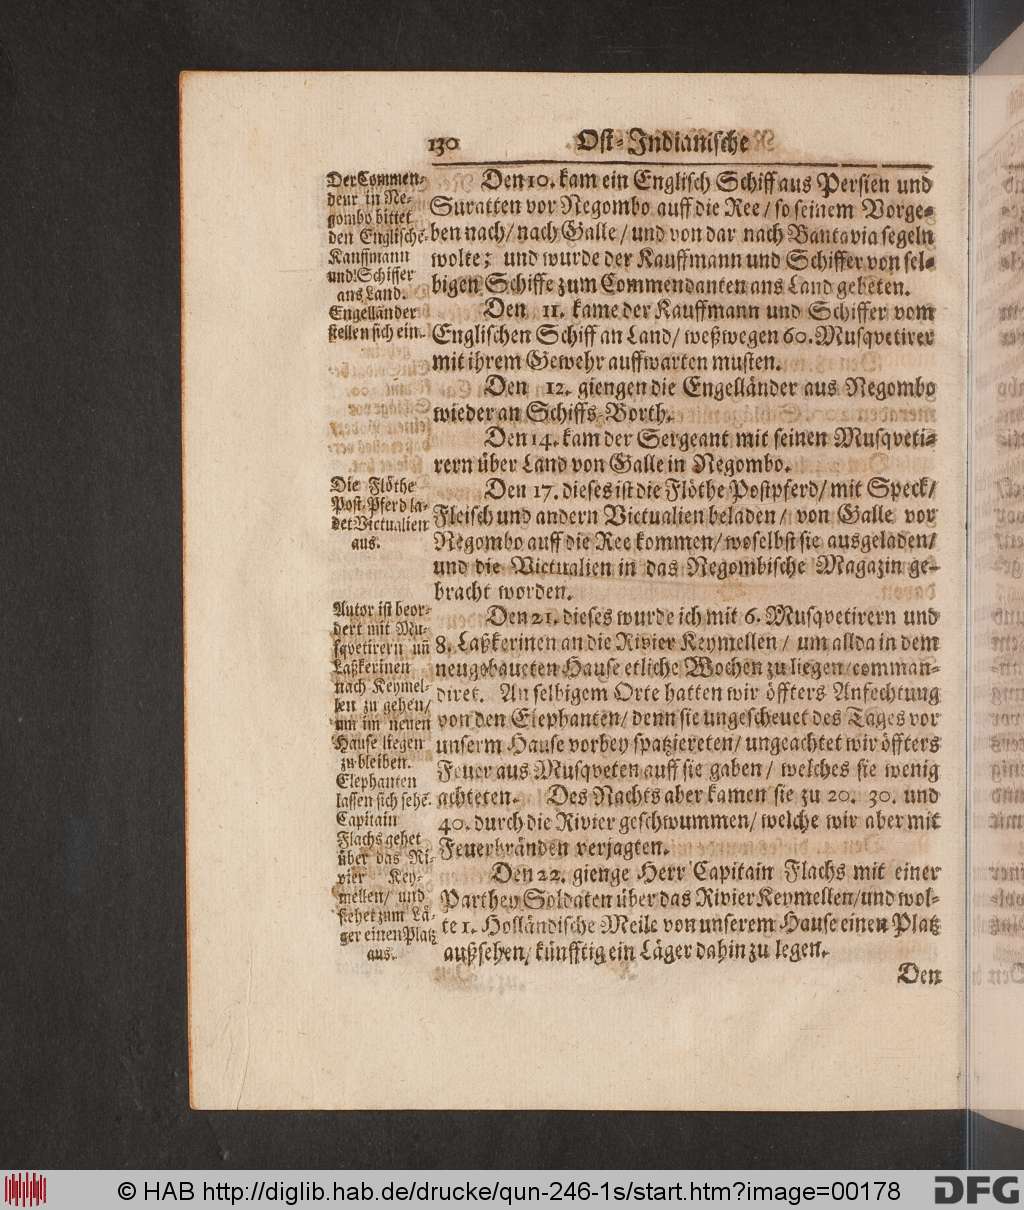 130 Ost-Indianische
Der Commen-
deur in Ne-
gombo bittet
den Englischē
Kauffmann
und Schiffer
ans Land.
Engelländer
stellen sich ein.
Den 10. kam ein Englisch Schiff aus Persien und
Suratten vor Negombo auff die Ree / so seinem Vorge-
ben nach / nach Galle / und von dar nach Bantavia segeln
wolte; und wurde der Kauffmann und Schiffer von sel-
bigen Schiffe zum Commendanten ans Land gebeten.
Den 11. kame der Kauffmann und Schiffer vom
Englischen Schiff an Land / weßwegen 60. Musqvetirer
mit ihrem Gewehr auffwarten musten.
Den 12. giengen die Engelländer aus Negombo
wieder an Schiffs-Borth.
Den 14. kam der Sergeant mit seinen Musqveti-
rern über Land von Galle in Negombo.
Die Flöthe
Post-Pferd la-
det Victualien
aus.
Den 17. dieses ist die Flöthe Postpferd / mit Speck /
Fleisch und andern Victualien beladen / von Galle vor
Negombo auff die Ree kommen / woselbst sie ausgeladen /
und die Victualien in das Negombische Magazin ge-
bracht worden.
Autor ist beor-
dert mit Mu-
sqvetirern uñ
Laßkerinen
nach Keymel-
len zu gehen /
um im neuen
Hause liegen
zu bleiben.
Elephanten
lassen sich sehē.
Capitain
Flachs gehet
über das Ri-
vier Key-
mellen / und
siehet zum Lä-
ger einen Platz
aus.
Den 21. dieses wurde ich mit 6. Musqvetirern und
8. Laßkerinen an die Rivier Keymellen / um allda in dem
neugebaueten Hause etliche Wochen zu liegen / comman-
diret. An selbigem Orte hatten wir öffters Anfechtung
von den Elephanten / denn sie ungescheuet des Tages vor
unserm Hause vorbey spatziereten / ungeachtet wir öffters
Feuer aus Musqveten auff sie gaben / welches sie wenig
achteten. Des Nachts aber kamen sie zu 20. 30. und
40. durch die Rivier geschwummen / welche wir aber mit
Feuerbränden verjagten.
Den 22. gienge Herr Capitain Flachs mit einer
Parthey Soldaten über das Rivier Keymellen / und wol-
te 1. Holländische Meile von unserem Hause einen Platz
außsehen / künfftig ein Läger dahin zu legen.
Den
© HAB http://diglib.hab.de/drucke/qun-246-1s/start.htm?image=00178
DFG